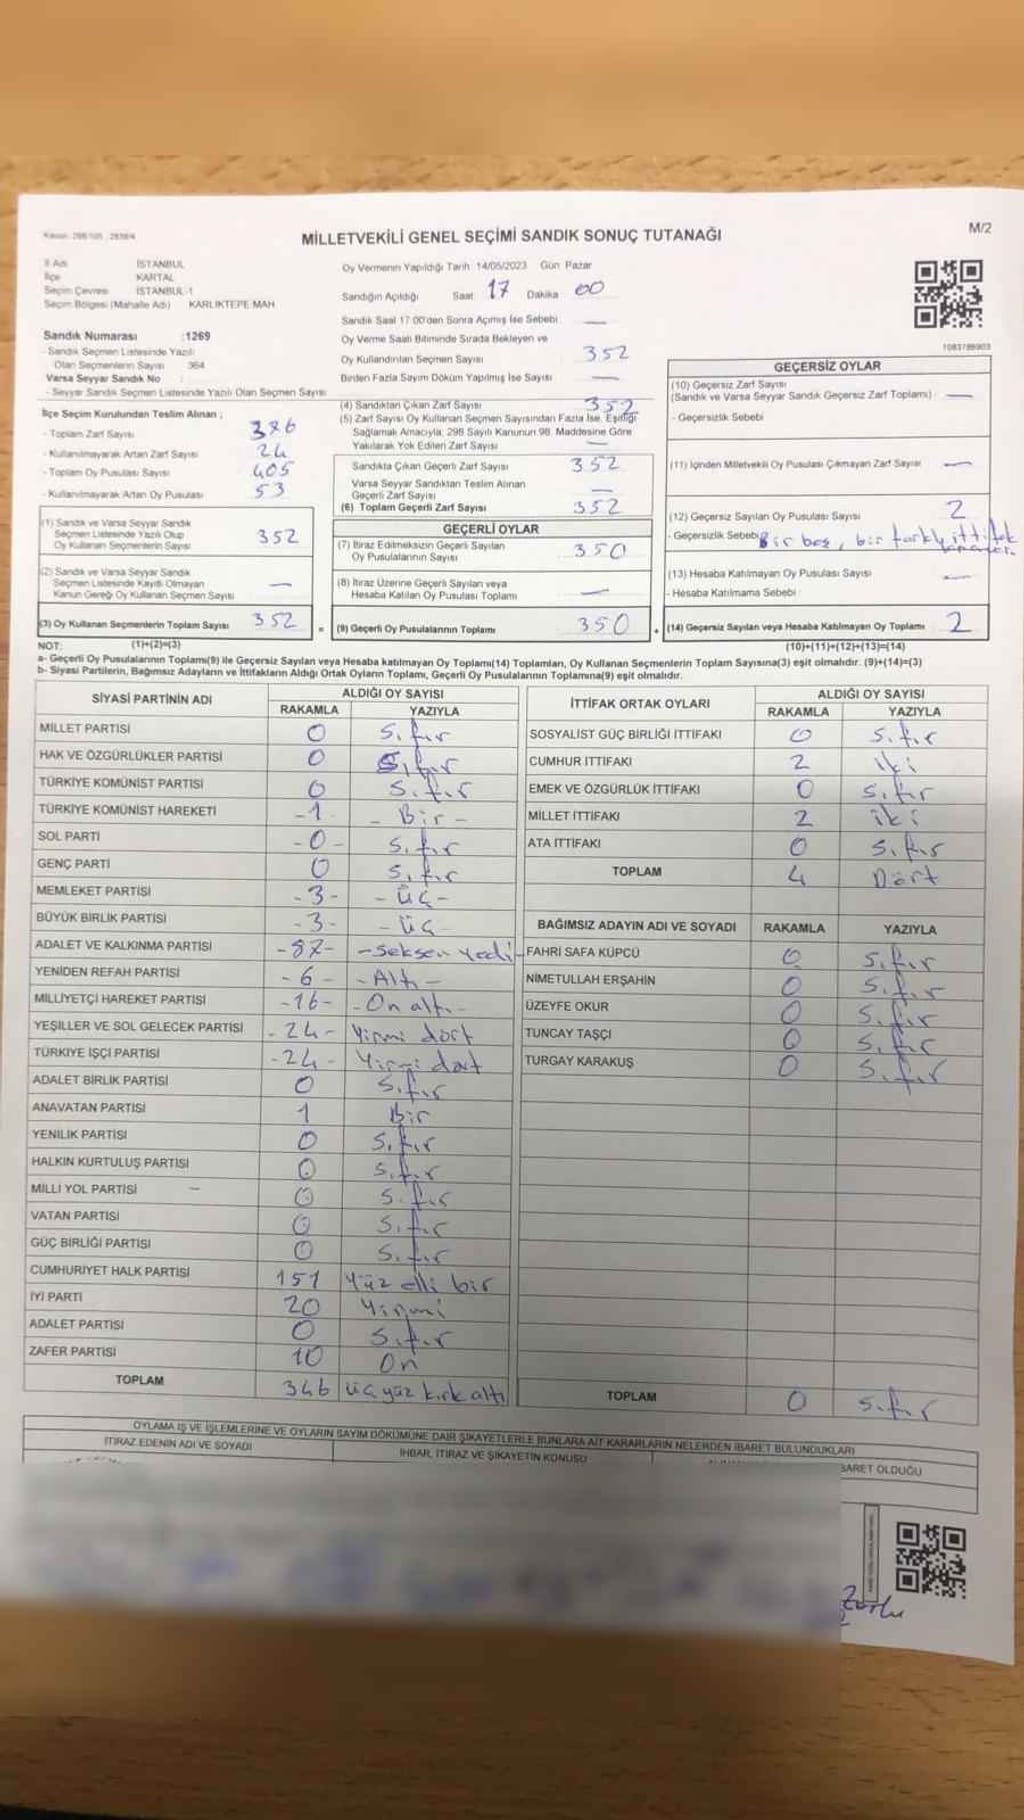 MİLLETVEKİLİ GENEL SEÇİMİ SANDIK SONUÇ TUTANAĞI
M/2
İl Adı İSTANBUL
İlçe KARTAL
Seçim Çevresi İSTANBUL-1
Seçim Bölgesi (Mahalle Adı) KARLIKTEPE MAH
Sandık Numarası :1269
- Sandık Seçmen Listesinde Yazılı
Olan Seçmenlerin Sayısı 364
Varsa Seyyar Sandık No :
- Seyyar Sandık Seçmen Listesinde Yazılı Olan Seçmen Sayısı
İlçe Seçim Kurulundan Teslim Alınan ;
- Toplam Zarf Sayısı 376
- Kullanılmayarak Artan Zarf Sayısı 24
- Toplam Oy Pusulası Sayısı 405
- Kullanılmayarak Artan Oy Pusulası 53
(1) Sandık ve Varsa Seyyar Sandık
Seçmen Listesinde Yazılı Olup
Oy Kullanan Seçmenlerin Sayısı 352
(2) Sandık ve Varsa Seyyar Sandık
Seçmen Listesinde Kayıtlı Olmayan
Kanun Gereği Oy Kullanan Seçmen Sayısı —
(3) Oy Kullanan Seçmenlerin Toplam Sayısı 352 =
Oy Vermenin Yapıldığı Tarih 14/05/2023 Gün Pazar
Sandığın Açıldığı Saat 17 Dakika 00
Sandık Saat 17:00'den Sonra Açılmış İse Sebebi —
Oy Verme Saati Bitiminde Sırada Bekleyen ve
Oy Kullandırılan Seçmen Sayısı 352
Birden Fazla Sayım Döküm Yapılmış İse Sayısı —
(4) Sandıktan Çıkan Zarf Sayısı 352
(5) Zarf Sayısı Oy Kullanan Seçmen Sayısından Fazla İse, Eşitliği
Sağlamak Amacıyla, 298 Sayılı Kanunun 98. Maddesine Göre
Yakılarak Yok Edilen Zarf Sayısı —
Sandıkta Çıkan Geçerli Zarf Sayısı 352
Varsa Seyyar Sandıktan Teslim Alınan
Geçerli Zarf Sayısı —
(6) Toplam Geçerli Zarf Sayısı 352
GEÇERLİ OYLAR
(7) İtiraz Edilmeksizin Geçerli Sayılan
Oy Pusulalarının Sayısı 350
(8) İtiraz Üzerine Geçerli Sayılan veya
Hesaba Katılan Oy Pusulası Toplamı —
(9) Geçerli Oy Pusulalarının Toplamı 350 +
1083789903
GEÇERSİZ OYLAR
(10) Geçersiz Zarf Sayısı
(Sandık ve Varsa Seyyar Sandık Geçersiz Zarf Toplamı) —
- Geçersizlik Sebebi
(11) İçinden Milletvekili Oy Pusulası Çıkmayan Zarf Sayısı —
(12) Geçersiz Sayılan Oy Pusulası Sayısı 2
- Geçersizlik Sebebi Bir boş, bir farklı ittifak
(13) Hesaba Katılmayan Oy Pusulası Sayısı —
- Hesaba Katılmama Sebebi
(14) Geçersiz Sayılan veya Hesaba Katılmayan Oy Toplamı 2
NOT: (1)+(2)=(3) (10)+(11)+(12)+(13)=(14)
a- Geçerli Oy Pusulalarının Toplamı(9) ile Geçersiz Sayılan veya Hesaba katılmayan Oy Toplamı(14) Toplamları, Oy Kullanan Seçmenlerin Toplam Sayısına(3) eşit olmalıdır. (9)+(14)=(3)
b- Siyasi Partilerin, Bağımsız Adayların ve İttifakların Aldığı Ortak Oyların Toplamı, Geçerli Oy Pusulalarının Toplamına(9) eşit olmalıdır.
SİYASİ PARTİNİN ADI ALDIĞI OY SAYISI
RAKAMLA YAZIYLA
MİLLET PARTİSİ 0 Sıfır
HAK VE ÖZGÜRLÜKLER PARTİSİ 0 Sıfır
TÜRKİYE KOMÜNİST PARTİSİ 0 Sıfır
TÜRKİYE KOMÜNİST HAREKETİ -1 - Bir -
SOL PARTİ -0- Sıfır
GENÇ PARTİ 0 Sıfır
MEMLEKET PARTİSİ -3- -üç-
BÜYÜK BİRLİK PARTİSİ -3- -üç
ADALET VE KALKINMA PARTİSİ -87- -Seksen yedi-
YENİDEN REFAH PARTİSİ -6- -Altı-
MİLLİYETÇİ HAREKET PARTİSİ -16- -On altı-
YEŞİLLER VE SOL GELECEK PARTİSİ -24- Yirmi dört
TÜRKİYE İŞÇİ PARTİSİ -24- Yirmi dört
ADALET BİRLİK PARTİSİ 0 Sıfır
ANAVATAN PARTİSİ 1 Bir
YENİLİK PARTİSİ 0 Sıfır
HALKIN KURTULUŞ PARTİSİ 0 Sıfır
MİLLİ YOL PARTİSİ 0 Sıfır
VATAN PARTİSİ 0 Sıfır
GÜÇ BİRLİĞİ PARTİSİ 0 Sıfır
CUMHURİYET HALK PARTİSİ 151 Yüz elli bir
İYİ PARTİ 20 Yirmi
ADALET PARTİSİ 0 Sıfır
ZAFER PARTİSİ 10 On
TOPLAM 346 üç yüz kırk altı
İTTİFAK ORTAK OYLARI ALDIĞI OY SAYISI
RAKAMLA YAZIYLA
SOSYALİST GÜÇ BİRLİĞİ İTTİFAKI 0 Sıfır
CUMHUR İTTİFAKI 2 iki
EMEK VE ÖZGÜRLÜK İTTİFAKI 0 Sıfır
MİLLET İTTİFAKI 2 iki
ATA İTTİFAKI 0 Sıfır
TOPLAM 4 Dört
BAĞIMSIZ ADAYIN ADI VE SOYADI RAKAMLA YAZIYLA
FAHRİ SAFA KÜPCÜ 0 Sıfır
NİMETULLAH ERŞAHİN 0 Sıfır
ÜZEYFE OKUR 0 Sıfır
TUNCAY TAŞÇI 0 Sıfır
TURGAY KARAKUŞ 0 Sıfır
TOPLAM 0 Sıfır
OYLAMA İŞ VE İŞLEMLERİNE VE OYLARIN SAYIM DÖKÜMÜNE DAİR ŞİKAYETLERLE BUNLARA AİT KARARLARIN NELERDEN İBARET BULUNDUKLARI
İTİRAZ EDENİN ADI VE SOYADI İHBAR, İTİRAZ VE ŞİKAYETİN KONUSU
OLDUĞU